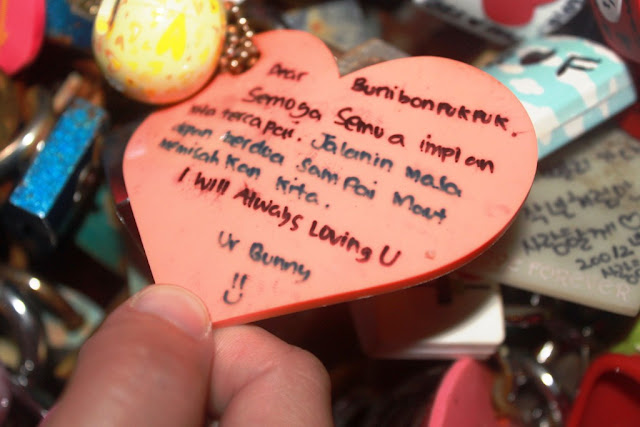 Dear Bunibonpukpuk.
Semoga Semua impian
kita tercapai. Jalanin masa
depan berdua sampai Maut
memisahkan Kita.
I Will Always Loving U
Ur Bunny
!!
OF
사랑할게
FOREVER